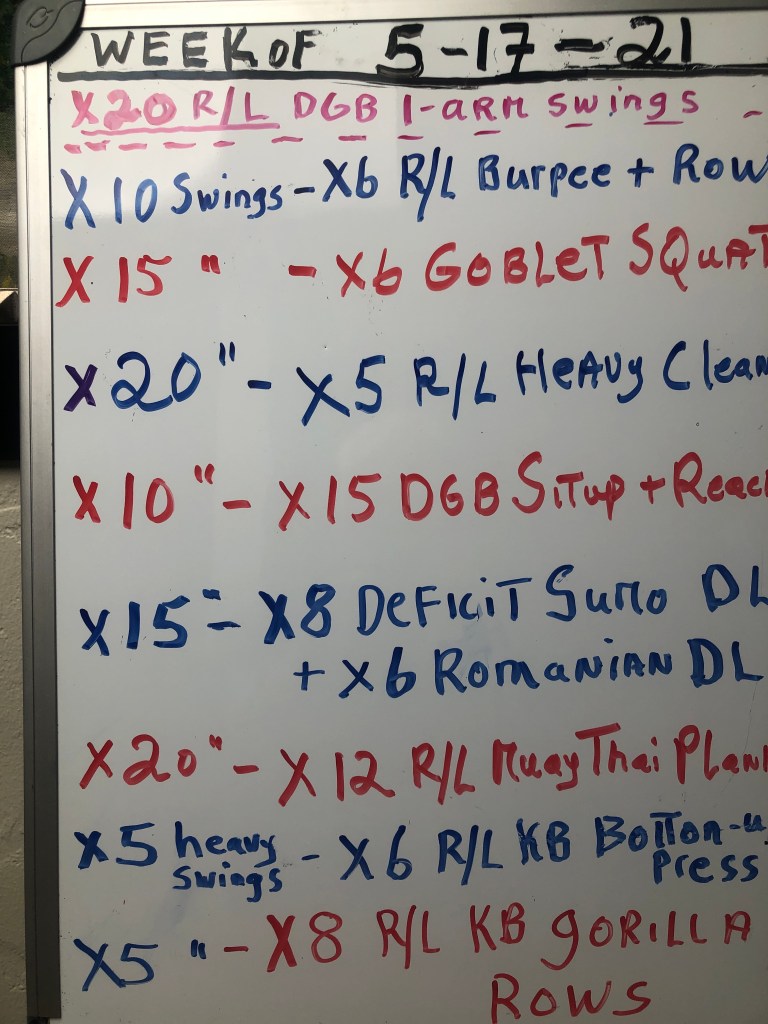 WEEK OF 5-17-21
X20 R/L DGB 1-ARM swings -
X10 Swings - X6 R/L Burpee + Row
X 15 " - X6 GOBLET SQUAT
X20 " - X5 R/L HEAVY Clean
X10 " - X15 DGB Situp + Reac
X15 " - X8 DEFICIT SUMO DL
+ X6 ROMANIAN DL
X20 " - X12 R/L Muay Thai Plank
X5 heavy swings - X6 R/L KB BOTTOM-U
Press
X5 " - X8 R/L KB GORILLA
ROWS